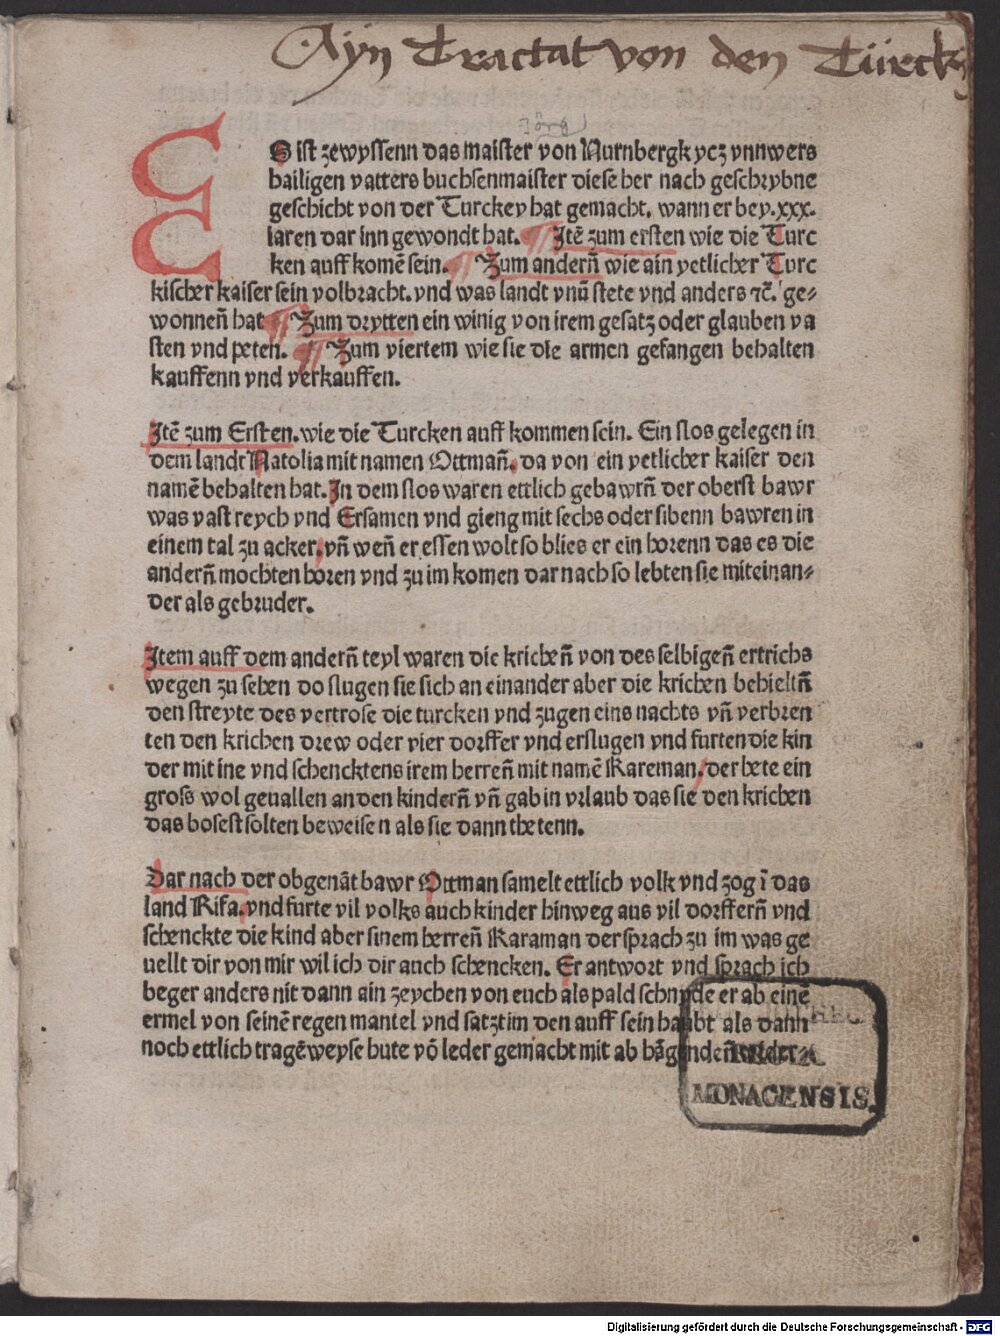 Ayn Tractat von den Türckn
Jörg
ES ist zewyssenn das maister von Nurnbergk ycz vnnwers
hailigen vatters buchsenmaister diese her nach geschrybne
geschicht von der Turckey hat gemacht. wann er bey.xxx.
iaren dar inn gewondt hat. ¶ Jtē zum ersten wie die Turc
ken auff komē sein. ¶ Zum andern̄ wie ain yetlicher Turc
kischer kaiser sein volbracht. vnd was landt vnū stete vnd anders ⁊c̄. ge⸗
wonnen̄ hat ¶ Zum drytten ein winig von irem gesatz oder glauben va
sten vnd peten. ¶ Zum viertem wie sie die armen gefangen behalten
kauffenn vnd verkauffen.
Jtē zum Ersten. wie die Turcken auff kommen sein. Ein slos gelegen in
dem landt Natolia mit namen Ottman̄. da von ein yetlicher kaiser den
namē behalten hat. Jn dem slos waren ettlich gebawrn̄ der oberst bawr
was vast reych vnd Ersamen vnd gieng mit sechs oder sibenn bawren in
einem tal zu acker. vn̄ wen̄ er essen wolt so blies er ein horenn das es die
andern̄ mochten horen vnd zu im komen dar nach so lebten sie miteinan⸗
der als gebruder.
Jtem auff dem andern̄ teyl waren die krichen̄ von des selbigen̄ ertrichs
wegen zu sehen do slugen sie sich an einander aber die krichen behieltn̄
den streyte des vertrose die turcken vnd zugen eins nachts vn̄ verbren
ten den krichen drew oder vier dorffer vnd erslugen vnd furten die kin
der mit ine vnd schencktens irem herren̄ mit namē Kareman. der hete ein
gross wol geuallen an den kindern̄ vn̄ gab in vrlaub das sie den krichen
das bosest solten beweisen als sie dann thetenn.
Dar nach der obgenāt bawr Ottman samelt ettlich volk vnd zog ī das
land Rifa. vnd furte vil volks auch kinder hinweg aus vil dorffern̄ vnd
schenckte die kind aber sinem herren̄ Karaman der sprach zu im was ge
uellt dir von mir wil ich dir auch schencken. Er antwort vnd sprach ich
beger anders nit dann ain zeychen von euch als pald schnyde er ab einē
ermel von seinē regen mantel vnd satzt im den auff sein haubt als dann
noch ettlich tragē weyse hute vō leder gemacht mit ab hāgenden̄
REGIA
MONACENSIS.
Digitalisierung gefördert durch die Deutsche Forschungsgemeinschaft - DFG